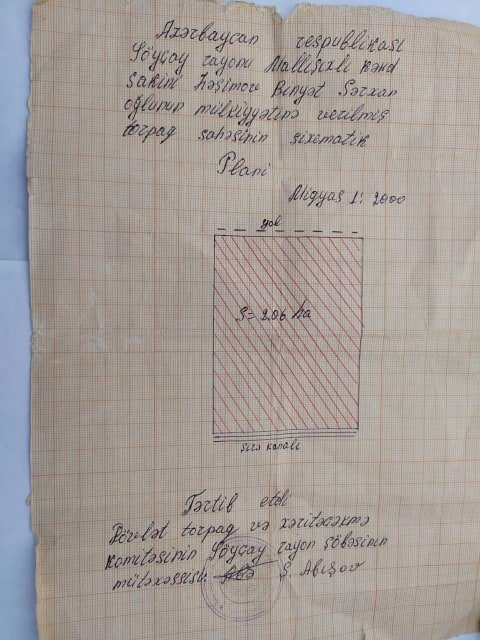 Azərbaycan respublikası
Göyçay rayonu Mallışıxlı kənd
sakini Həşimov Bünyət Sərxan
oğlunun mülkiyyətinə verilmiş
torpaq sahəsinin sxematik
Planı
Miqyas 1: 2000
yol
S= 2.06 ha
şirə kanalı
Tərtib etdi
Dövlət torpaq və xəritəçəkmə
komitəsinin Göyçay rayon şöbəsinin
mütəxəssisi: Ş. Abışov